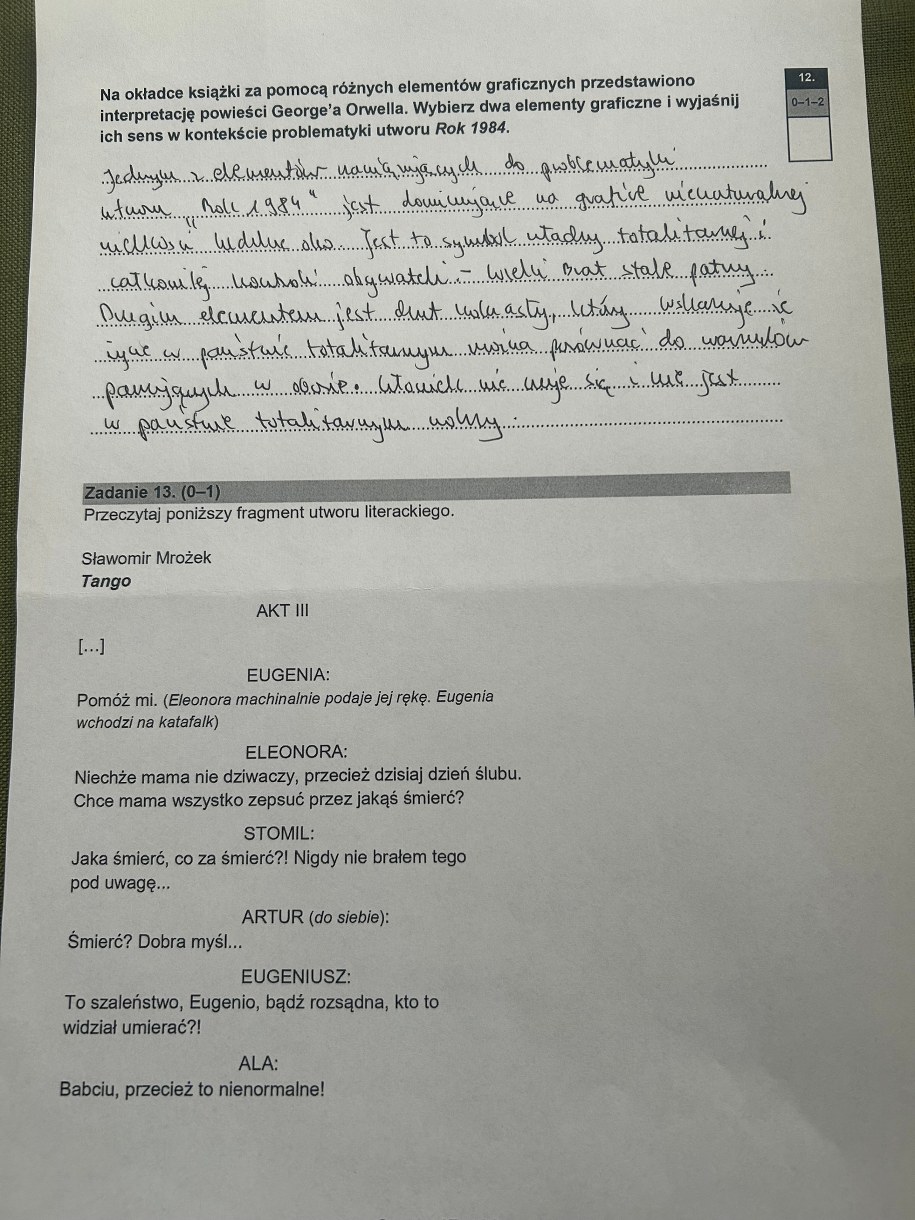 Na okładce książki za pomocą różnych elementów graficznych przedstawiono
interpretację powieści George'a Orwella. Wybierz dwa elementy graficzne i wyjaśnij
ich sens w kontekście problematyki utworu Rok 1984.
12.
0–1–2
Jednym z elementów nawiązujących do problematyki
utworu „Rok 1984" jest dominujące na grafice nienaturalnej
wielkości ludzkie oko. Jest to symbol władzy totalitarnej i
całkowitej kontroli obywateli – Wielki Brat stale patrzy.
Drugim elementem jest drut kolczasty, który wskazuje iż
życie w państwie totalitarnym można porównać do warunków
panujących w obozie. Człowiek nie czuje się i nie jest
w państwie totalitarnym wolny.
Zadanie 13. (0–1)
Przeczytaj poniższy fragment utworu literackiego.
Sławomir Mrożek
Tango
AKT III
[...]
EUGENIA:
Pomóż mi. (Eleonora machinalnie podaje jej rękę. Eugenia
wchodzi na katafalk)
ELEONORA:
Niechże mama nie dziwaczy, przecież dzisiaj dzień ślubu.
Chce mama wszystko zepsuć przez jakąś śmierć?
STOMIL:
Jaka śmierć, co za śmierć?! Nigdy nie brałem tego
pod uwagę...
ARTUR (do siebie):
Śmierć? Dobra myśl...
EUGENIUSZ:
To szaleństwo, Eugenio, bądź rozsądna, kto to
widział umierać?!
ALA:
Babciu, przecież to nienormalne!